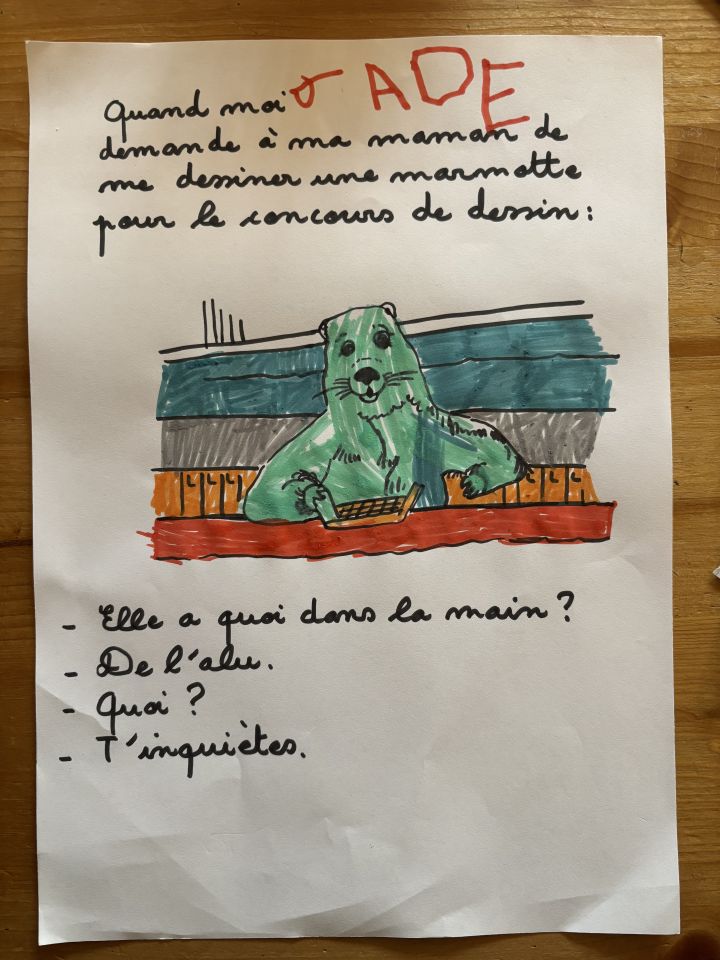 Quand moi JADE
demande à ma maman de
me dessiner une marmotte
pour le concours de dessin :
- Elle a quoi dans la main ?
- De l'alu.
- Quoi ?
- T'inquiètes.